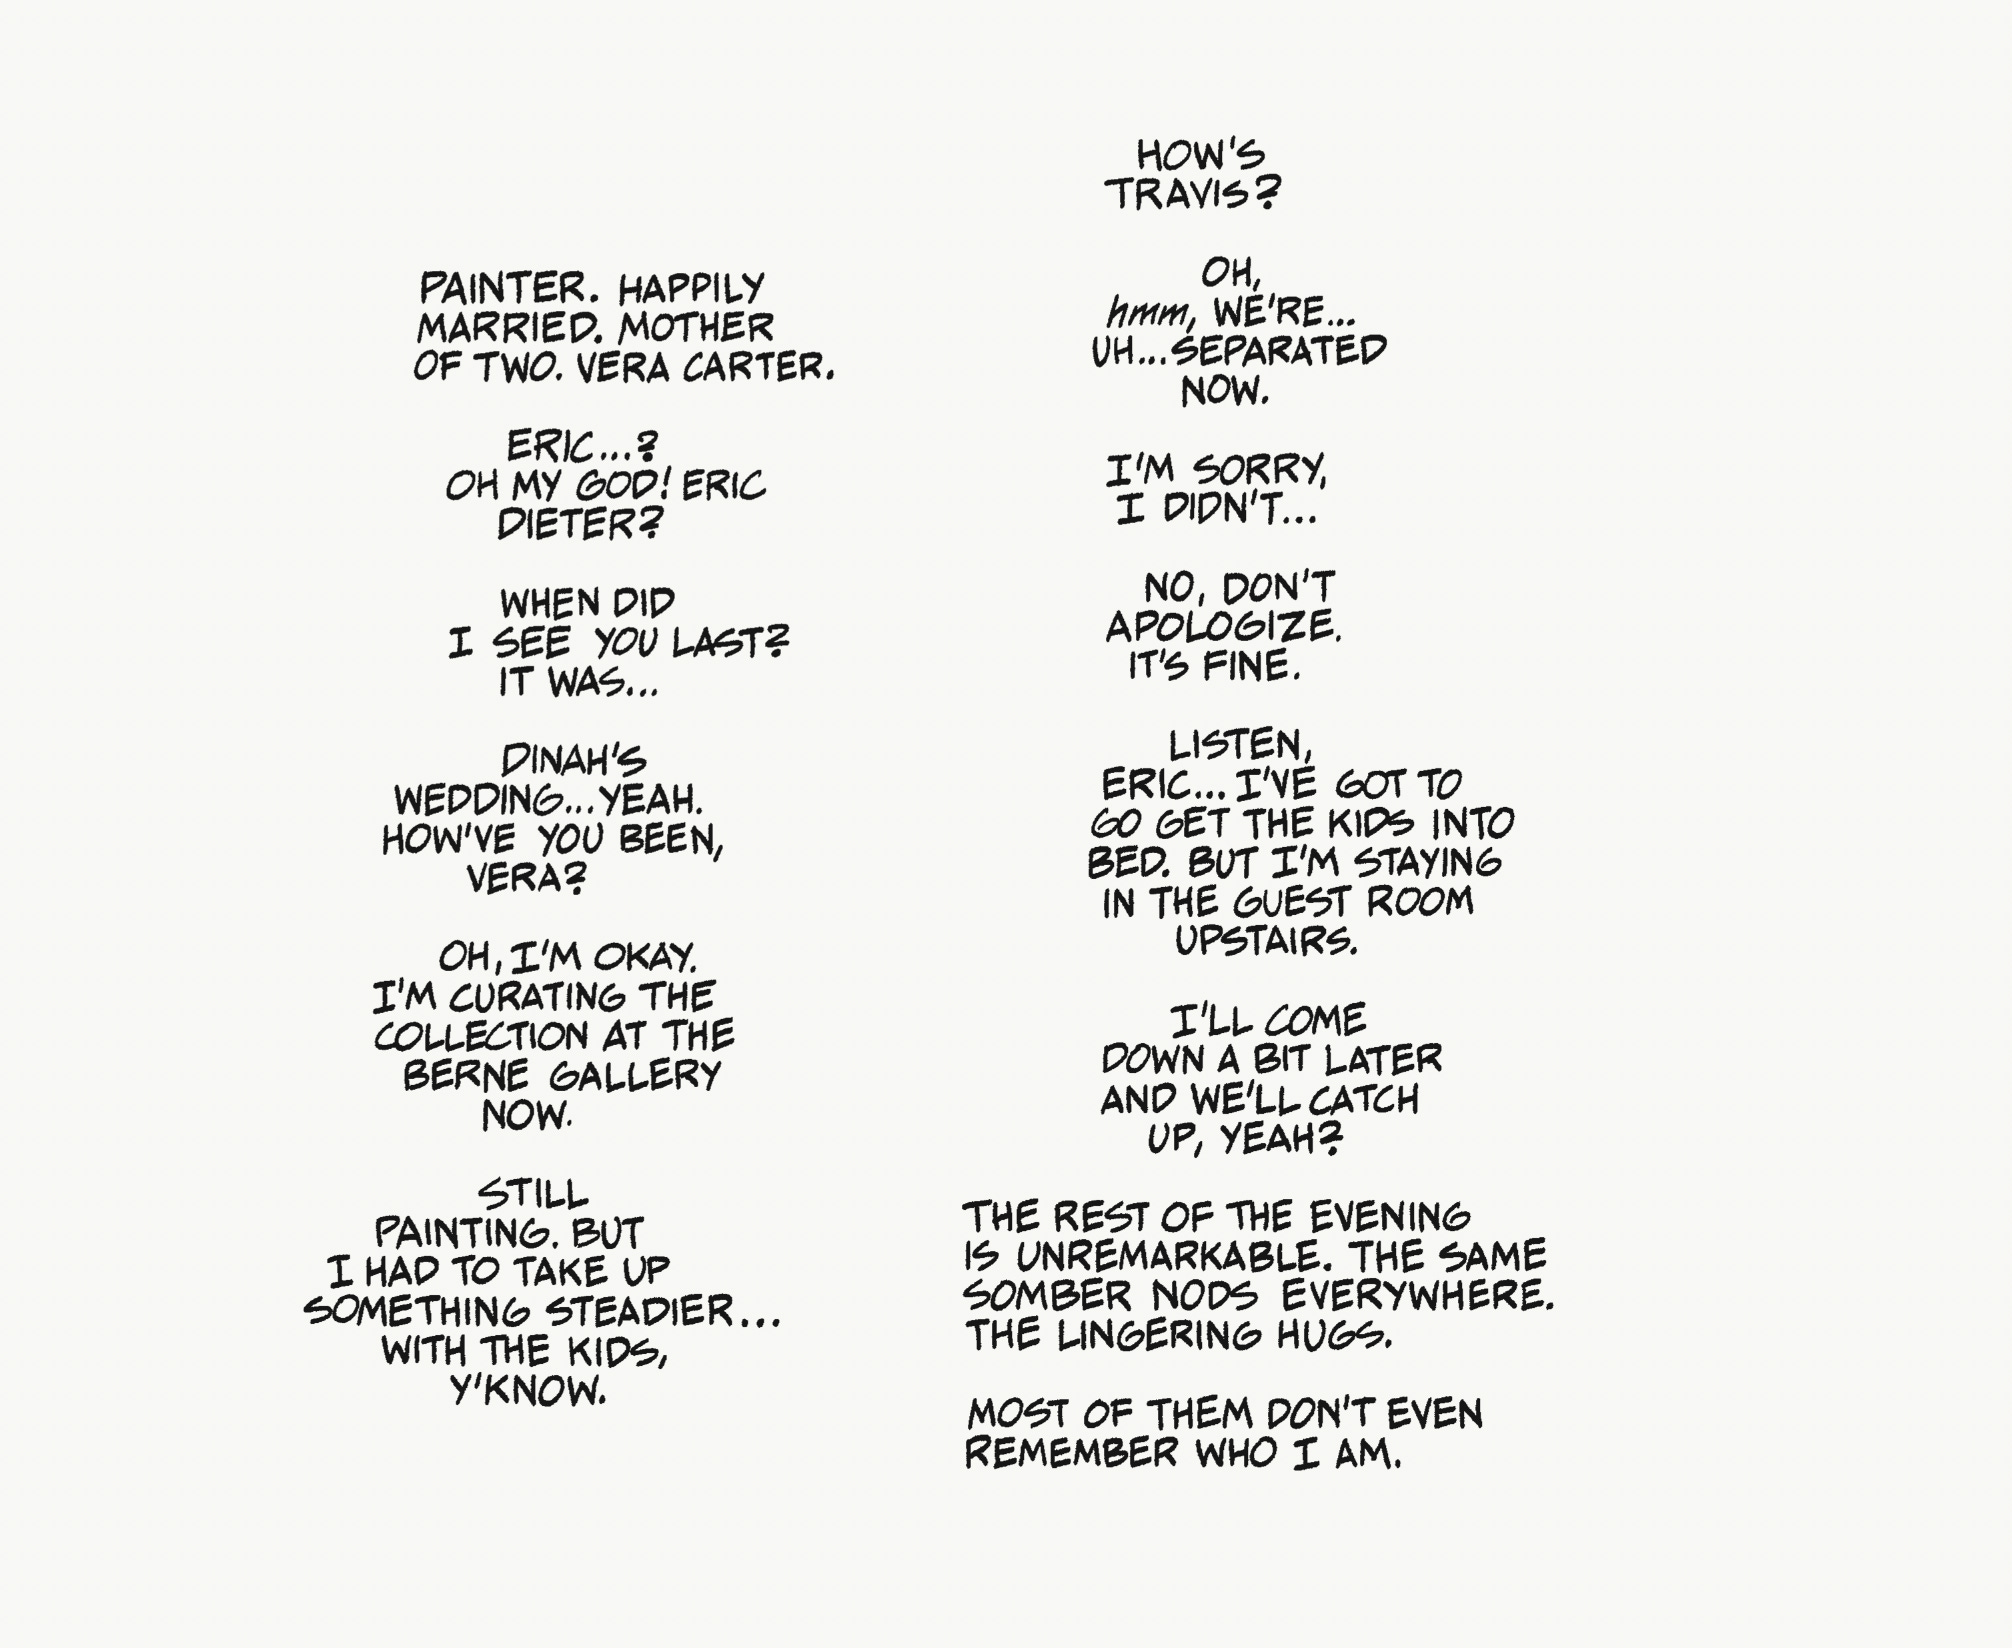 PAINTER. HAPPILY
MARRIED. MOTHER
OF TWO. VERA CARTER.
ERIC...?
OH MY GOD! ERIC
DIETER?
WHEN DID
I SEE YOU LAST?
IT WAS...
DINAH'S
WEDDING...YEAH.
HOW'VE YOU BEEN,
VERA?
OH, I'M OKAY.
I'M CURATING THE
COLLECTION AT THE
BERNE GALLERY
NOW.
STILL
PAINTING. BUT
I HAD TO TAKE UP
SOMETHING STEADIER...
WITH THE KIDS,
Y'KNOW.
HOW'S
TRAVIS?
OH,
hmm, WE'RE...
UH...SEPARATED
NOW.
I'M SORRY,
I DIDN'T...
NO, DON'T
APOLOGIZE.
IT'S FINE.
LISTEN,
ERIC... I'VE GOT TO
GO GET THE KIDS INTO
BED. BUT I'M STAYING
IN THE GUEST ROOM
UPSTAIRS.
I'LL COME
DOWN A BIT LATER
AND WE'LL CATCH
UP, YEAH?
THE REST OF THE EVENING
IS UNREMARKABLE. THE SAME
SOMBER NODS EVERYWHERE.
THE LINGERING HUGS.
MOST OF THEM DON'T EVEN
REMEMBER WHO I AM.